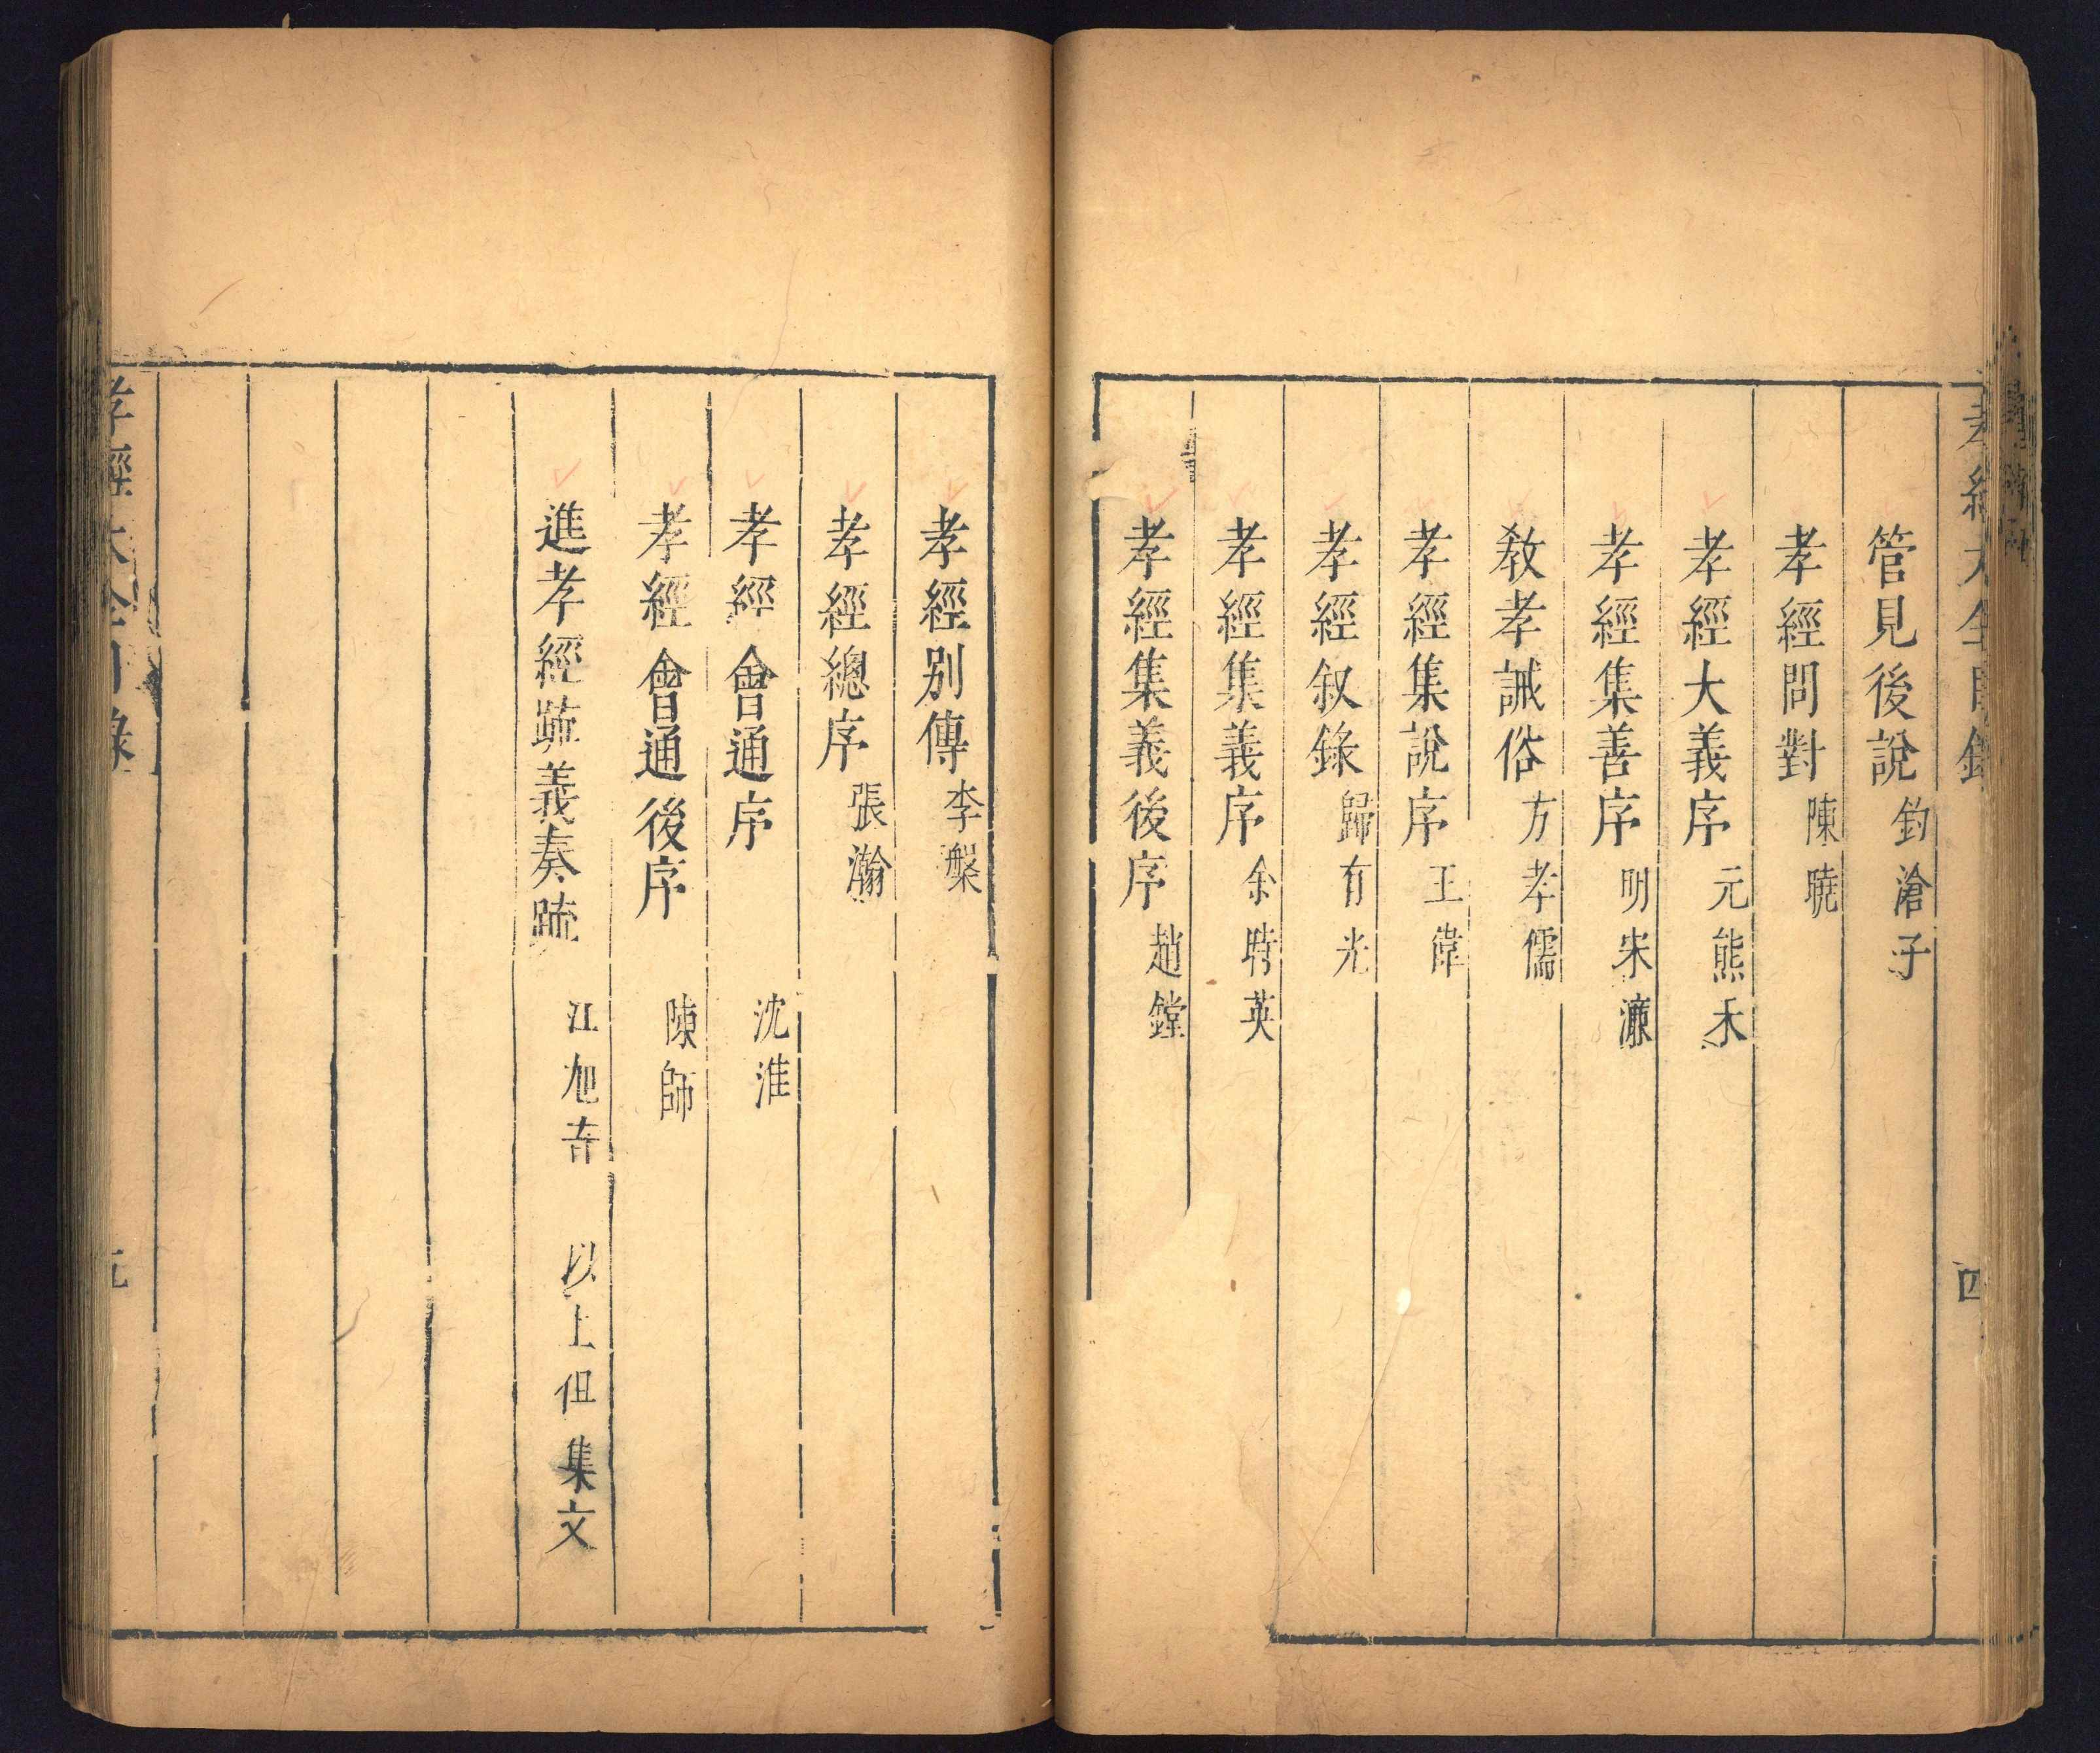 孝經大全目錄
四
管見後說 釣滄子
孝經問對 陳曉
孝經大義序 元熊禾
孝經集善序 明宋濂
教孝誡俗 方孝儒
孝經集說序 王偉
孝經叙錄 歸有光
孝經集義序 余時英
孝經集義後序 趙鏜
孝經別傳 李槃
孝經總序 張瀚
孝經會通序 沈淮
孝經會通後序 陳師
進孝經疏義奏疏 江旭奇 以上但集文
孝經大全目錄